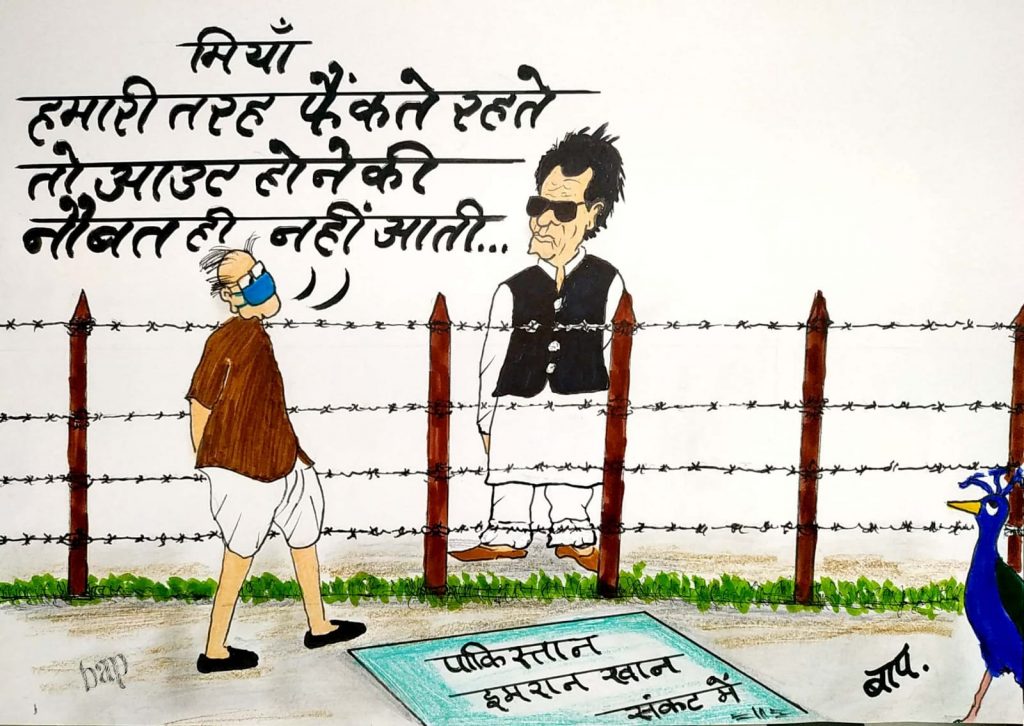 मियाँ
हमारी तरह फैंकते रहते
तो आउट होने की
नौबत ही नहीं आती...
पाकिस्तान
इमरान खान
संकट में
bap
बाप.